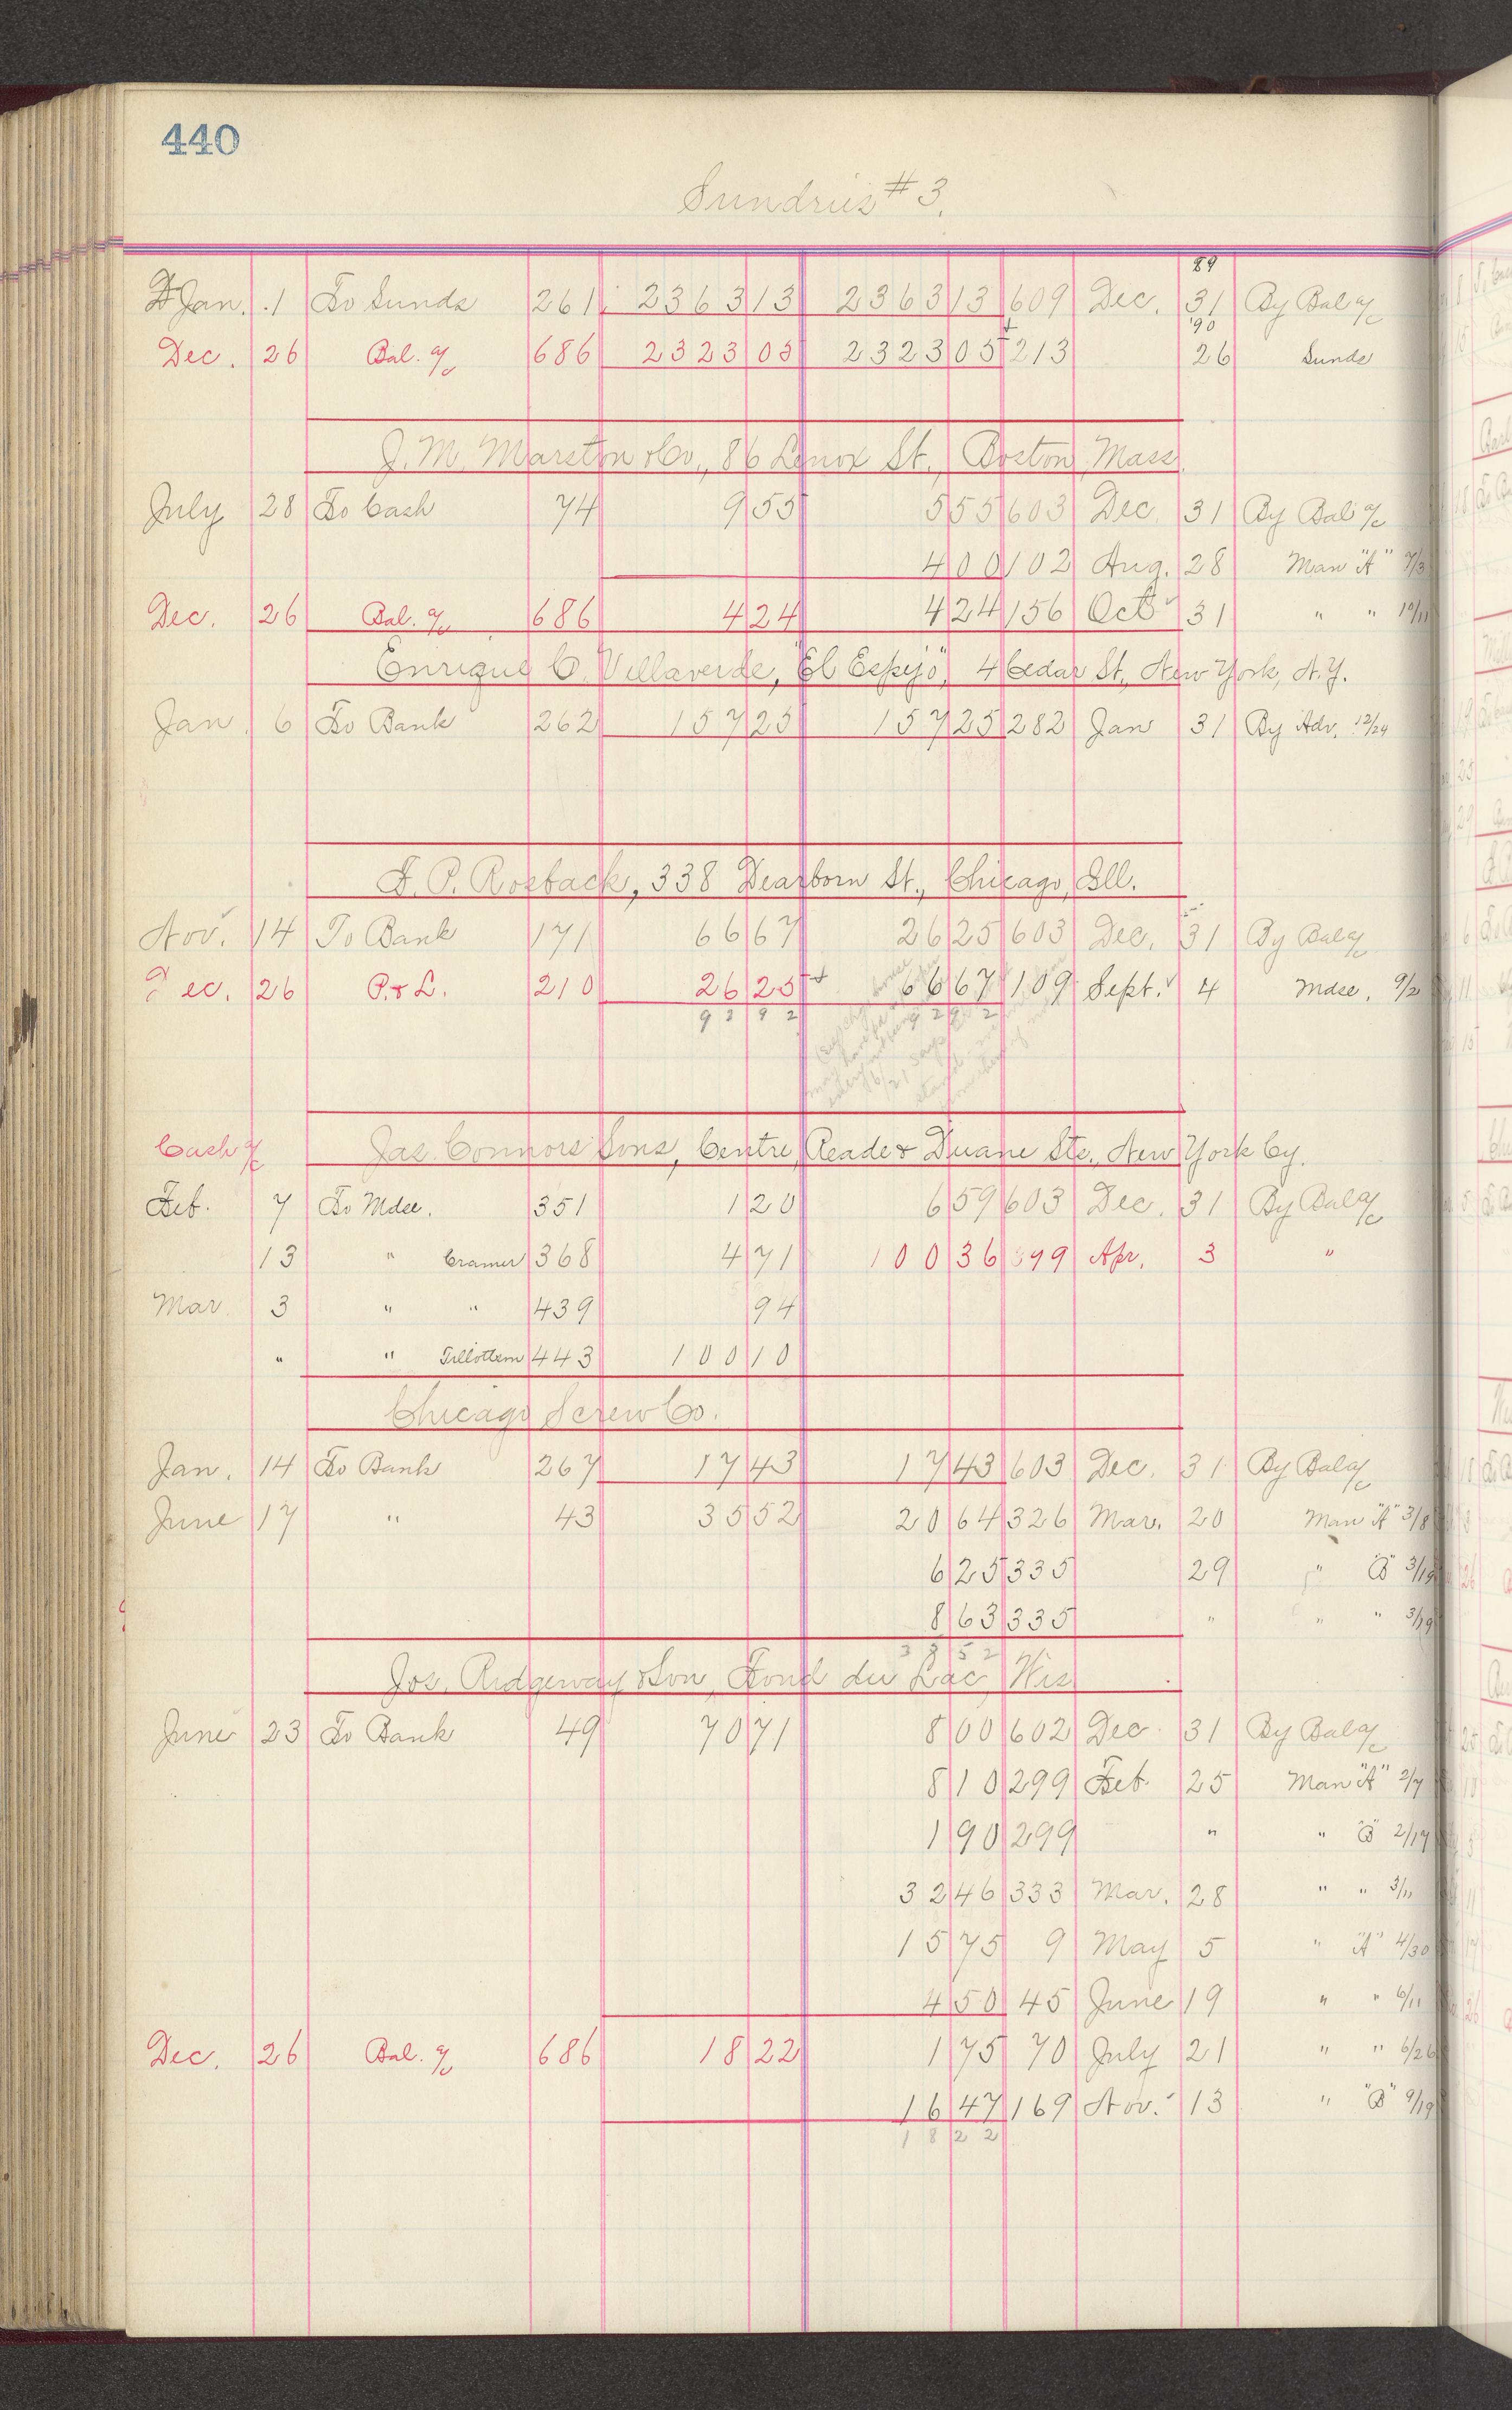 440
Sundries #3.
89
Jan. 1 To Sunds 261 2363 13 2363 13 609 Dec. 31 By Bal a/c
'90
Dec. 26 Bal. a/c 686 2323 05 2323 05 213 26 Sunds
J. M. Marston & Co., 86 Lenox St., Boston Mass
July 28 To Cash 74 9 55 5 55 603 Dec. 31 By Bal a/c
4 00 102 Aug. 28 Man "A" 7/3
Dec. 26 Bal. a/c 686 4 24 4 24 156 Oct 31 " " 10/11
Enrique C. Villaverde, "El Espejo", 4 Cedar St., New York, N.Y.
Jan. 6 To Bank 262 157 25 157 25 282 Jan 31 By Adv. 12/24
F. P. Rosback, 338 Dearborn St., Chicago, Ill.
Nov. 14 To Bank 171 66 67 26 25 603 Dec. 31 By Bal a/c
Dec. 26 P. & L. 210 26 25 66 67 109 Sept. 4 Mdse. 9/2
92 92 92 92
Cash a/c Jas. Connors Sons, Centre, Reade & Duane Sts., New York Cy.
Feb. 7 To Mdse. 351 1 20 6 59 603 Dec. 31 By Bal a/c
13 " Cramer 368 4 71 100 36 399 Apr. 3 "
Mar. 3 " " 439 94
" " Tillottson 443 100 10
Chicago Screw Co.
Jan. 14 To Bank 267 17 43 17 43 603 Dec. 31 By Bal a/c
June 17 " 43 35 52 20 64 326 Mar. 20 Man "A" 3/8
6 25 335 29 " B 3/19
8 63 335 " " " 3/19
35 52
Jos. Ridgeway & Son, Fond du Lac, Wis
June 23 To Bank 49 70 71 8 00 602 Dec. 31 By Bal a/c
8 10 299 Feb. 25 Man "A" 2/7
1 90 299 " " "B" 2/17
32 46 333 Mar. 28 " " 3/11
15 75 9 May 5 " "A" 4/30
4 50 45 June 19 " " 6/11
Dec. 26 Bal. a/c 686 18 22 1 75 70 July 21 " " 6/26
16 47 169 Nov. 13 " "B" 9/19
18 22